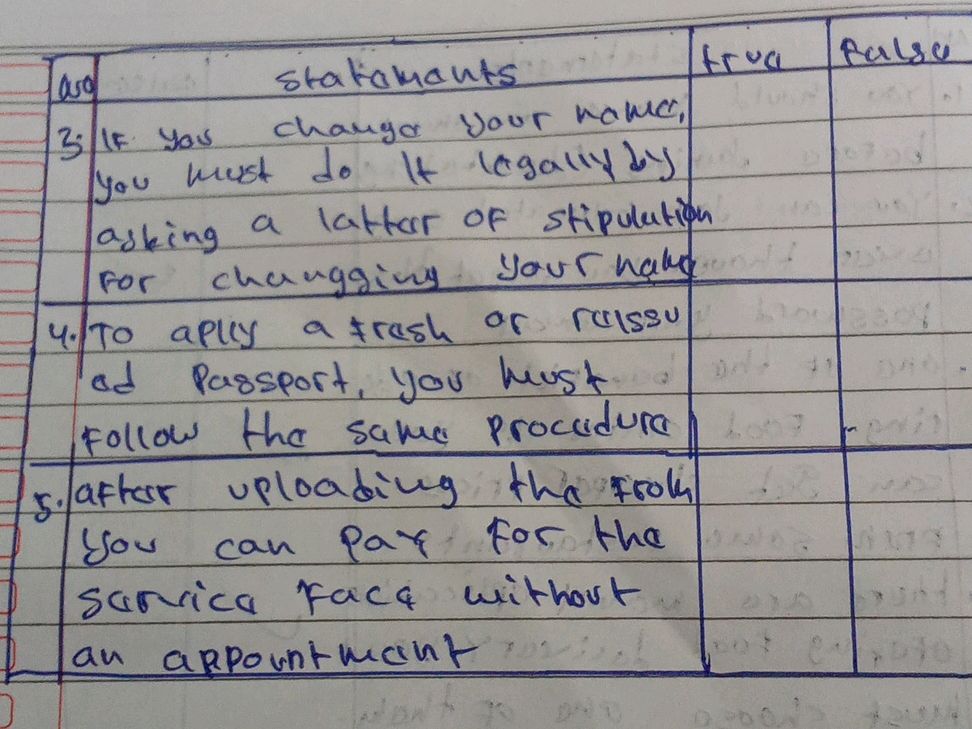 no statements true false
3. If you change your name,
you must do It legally by
asking a latter of stipulution
For changging your name
4. To aplly a fresh or reissu
ed Passport, you must
Follow the same procedure
5. after uploading the from
you can pay for the
service face without
an appountment